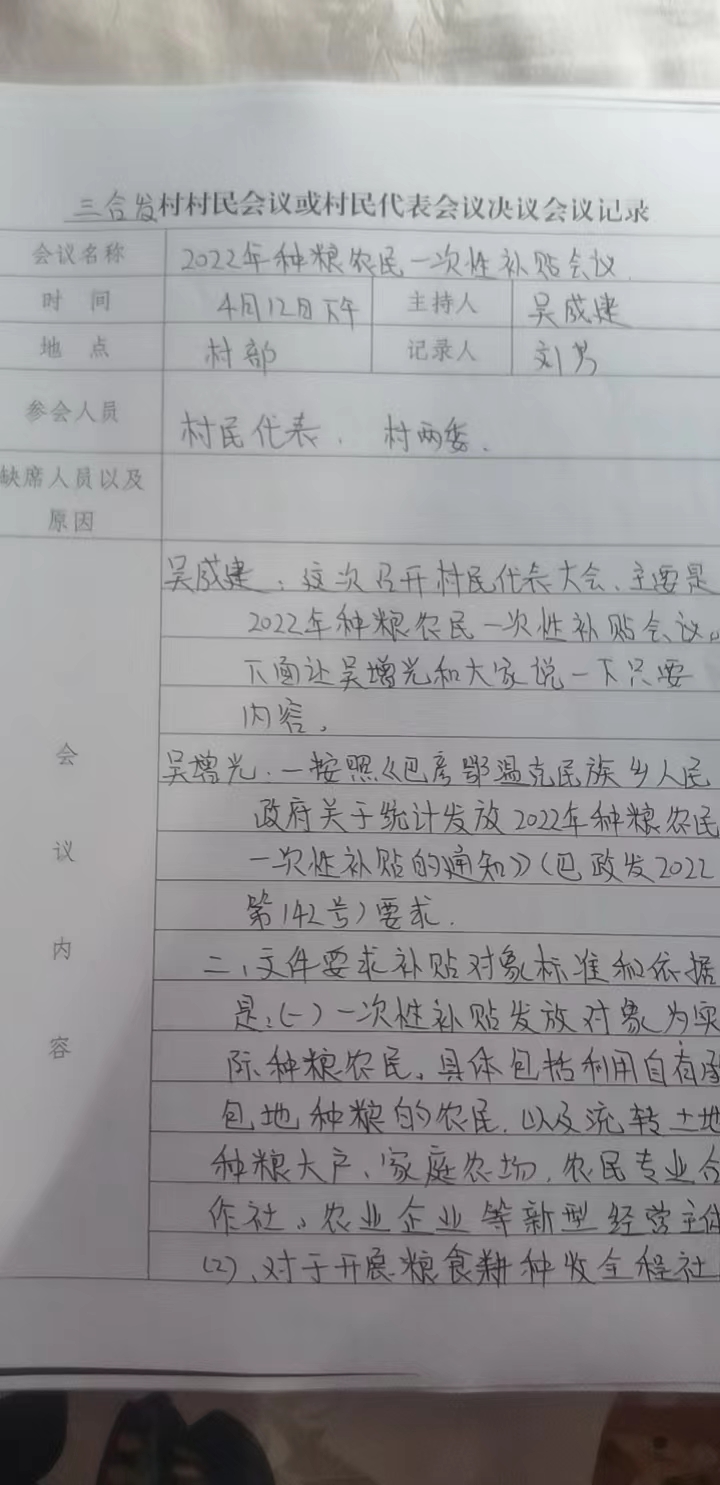 三合发村村民会议或村民代表会议决议会议记录
会议名称 2022年种粮农民一次性补贴会议
时 间 4月12日下午 主持人 吴成建
地 点 村部 记录人 刘男
参会人员 村民代表、村两委.
缺席人员以及
原因
会议内容
吴成建:这次召开村民代表大会、主要是
2022年种粮农民一次性补贴会议。
下面让吴增光和大家说一下只要
内容。
吴增光:一按照《巴彦鄂温克民族乡人民
政府关于统计发放2022年种粮农民
一次性补贴的通知》(巴政发2022
第142号)要求.
二、文件要求补贴对象标准和依据
是:(一)一次性补贴发放对象为实
际种粮农民,具体包括利用自有承
包地种粮的农民,以及流转土地
种粮大户、家庭农场,农民专业合
作社、农业企业等新型经营主体
(2)、对于开展粮食耕种收全程社